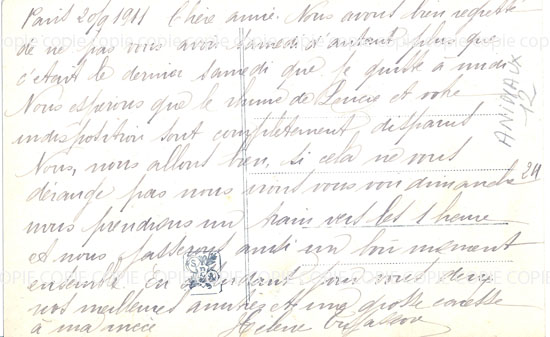 Paris 20/9 1911 Chère amie. Nous avons bien regretté
de ne pas vous avoir samedi d'autant plus que
c'était le dernier samedi que je quitte à midi
Nous espérons que le rhume de Loucie et votre
indisposition sont complètement disparut
Nous, nous allons bien, si cela ne vous
dérange pas nous irons vous voir dimanche 24
nous prendrons un train vers les 1 heure
et nous passerons ainsi un bon moment
ensemble. En attendant pour vous deux
nos meilleures amitiés et une grosse caresse
à ma nièce Hélène
ANIMAUX
12
COPIE COPIE COPIE COPIE COPIE COPIE